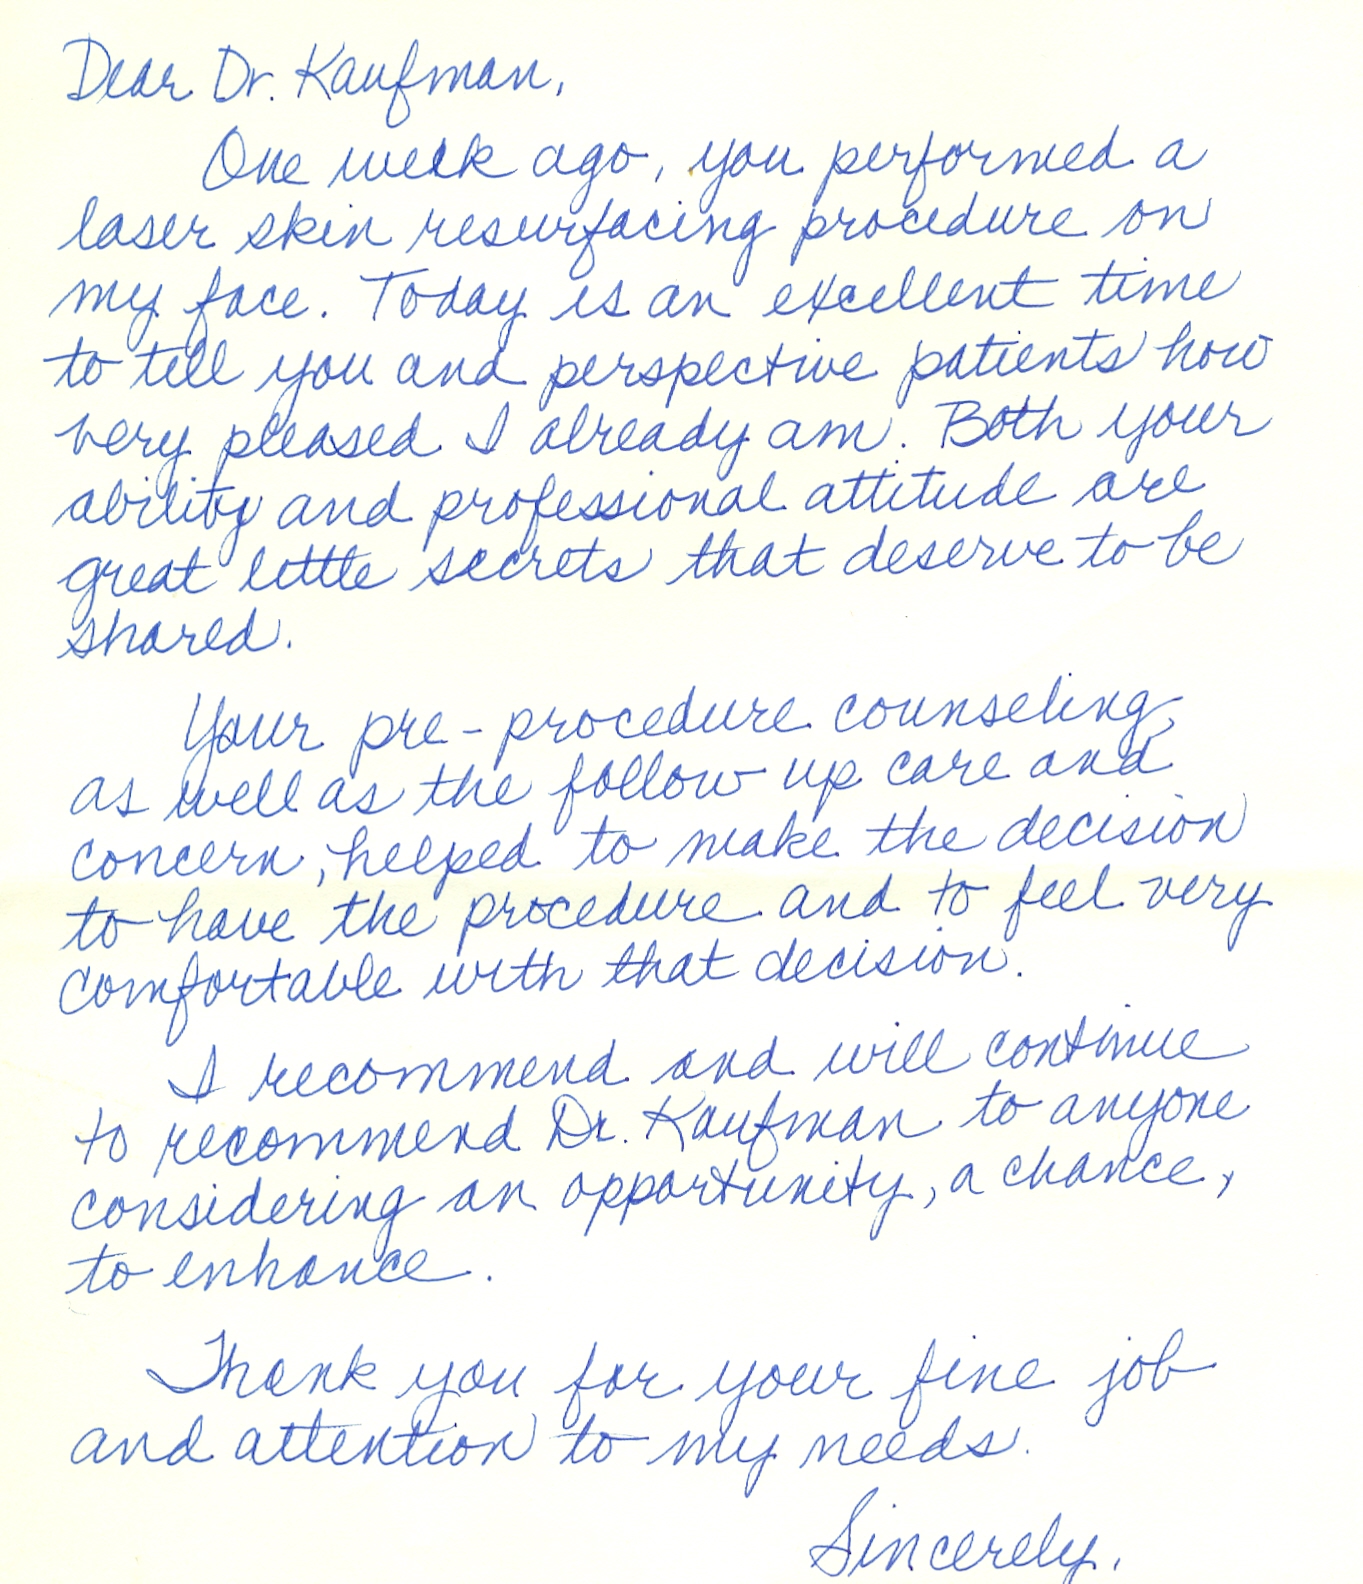 Dear Dr. Kaufman,
One week ago, you performed a
laser skin resurfacing procedure on
my face. Today is an excellent time
to tell you and perspective patients how
very pleased I already am. Both your
ability and professional attitude are
great little secrets that deserve to be
shared.
Your pre-procedure counseling,
as well as the follow up care and
concern, helped to make the decision
to have the procedure and to feel very
comfortable with that decision.
I recommend and will continue
to recommend Dr. Kaufman to anyone
considering an opportunity, a chance,
to enhance.
Thank you for your fine job
and attention to my needs.
Sincerely,